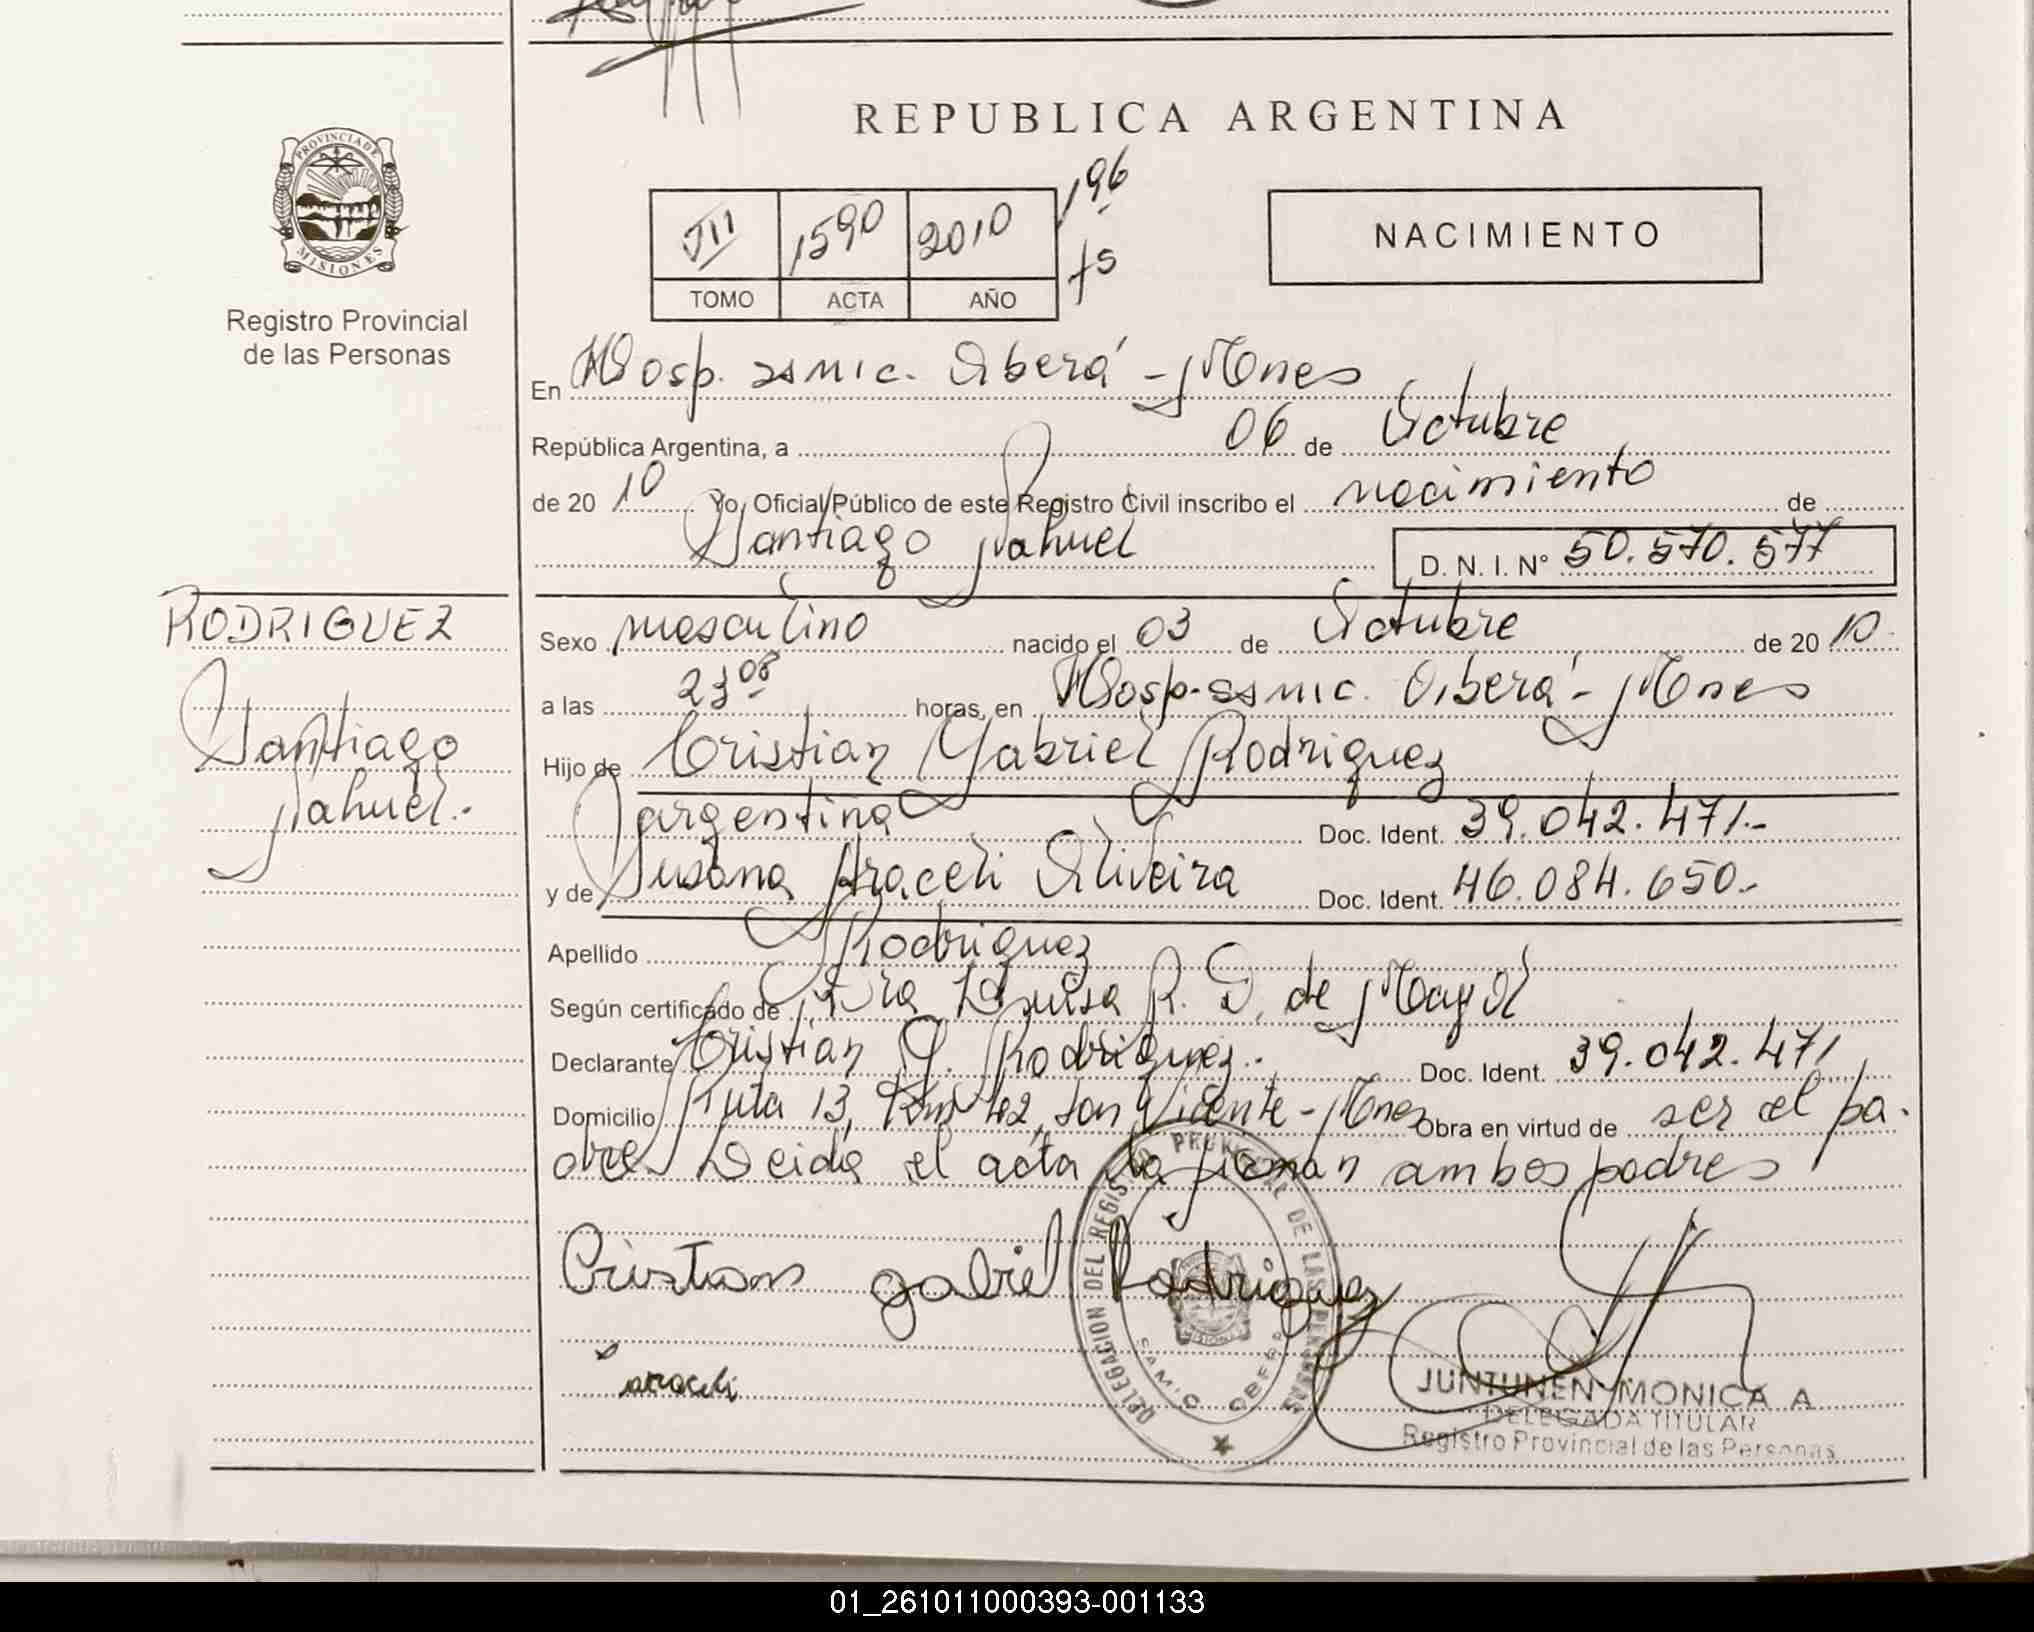 REPUBLICA ARGENTINA
PROVINCIA DE
MISIONES
Registro Provincial
de las Personas
III 1590 2010 196
fs
TOMO ACTA AÑO
NACIMIENTO
En Hosp. samic. Oberá - Mnes
República Argentina, a 06 de Octubre
de 2010 Yo, Oficial Público de este Registro Civil inscribo el nacimiento de
Santiago Nahuel D. N. I. N° 50.570.577
RODRIGUEZ
Santiago
Nahuel.
Sexo masculino nacido el 03 de Octubre de 2010.
a las 23 08 horas, en Hosp. samic. Oberá - Mnes
Hijo de Cristian Gabriel Rodriguez
argentina Doc. Ident. 39.042.471.-
y de Susana Araceli Oliveira Doc. Ident. 46.084.650.-
Apellido Rodriguez
Según certificado de Dra Luisa R. D. de Mayol
Declarante Cristian G. Rodriguez. Doc. Ident. 39.042.471
Domicilio Ruta 13, Km 42, San Vicente - Mnes Obra en virtud de ser el pa.
dre. Leida el acta la firman ambos padres
Cristian gabriel Rodriguez
araceli
DELEGACION DEL REGISTRO PROVINCIAL DE LAS PERSONAS
SAMIC OBERA
JUNTUNEN MONICA A
DELEGADA TITULAR
Registro Provincial de las Personas
01_261011000393-001133